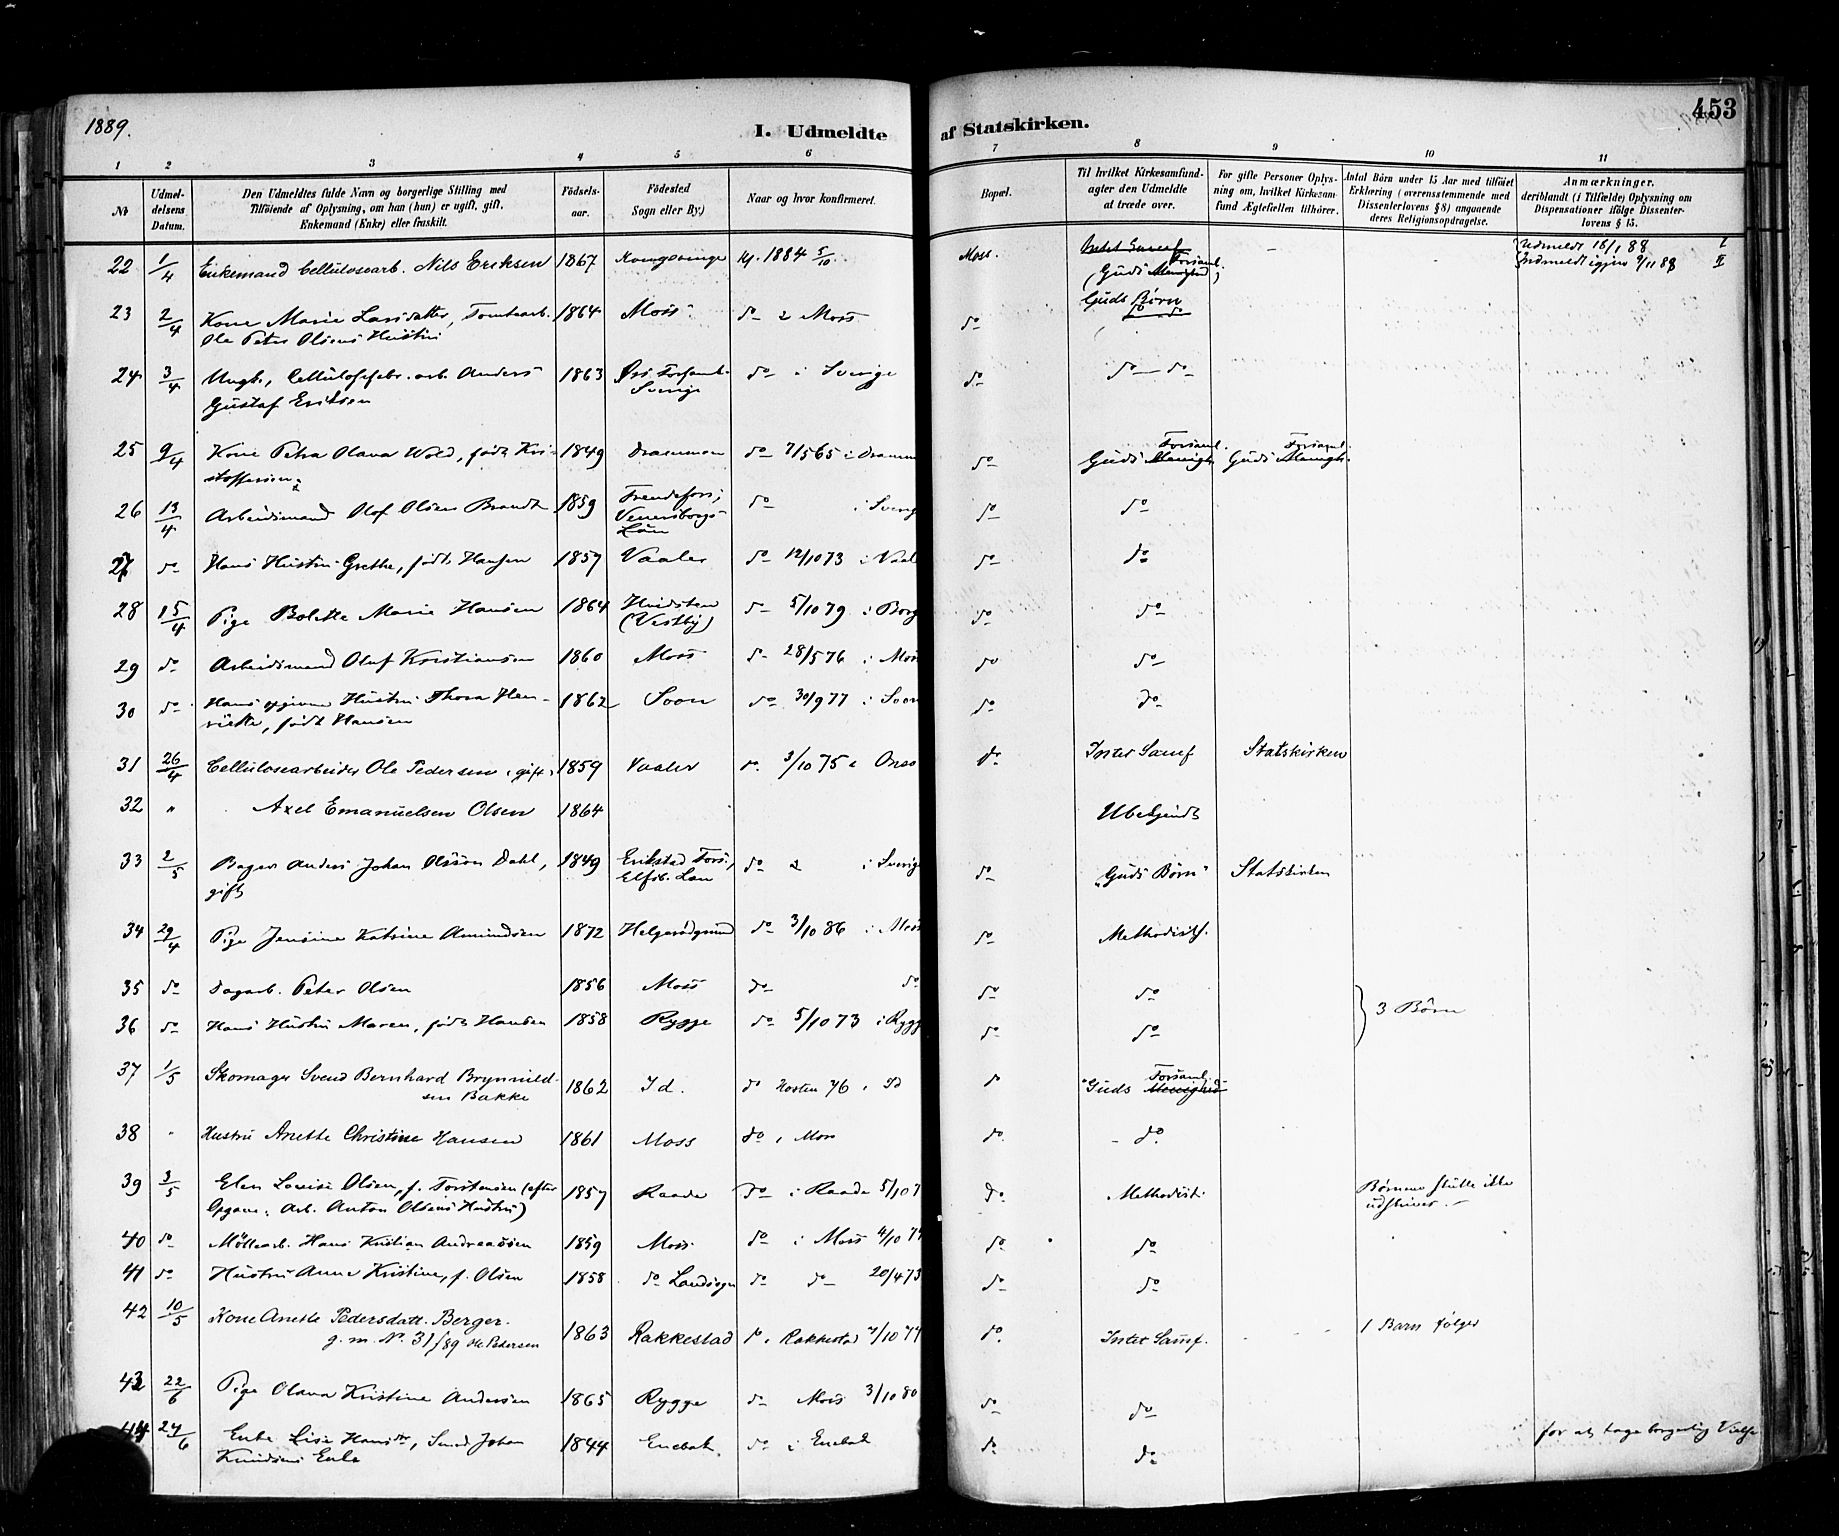 1889.
I. Udmeldte af Statskirken.
453
1 2 3 4 5 6 7 8 9 10 11
Nr
Udmel-
delsens
Datum.
Den Udmeldtes fulde Navn og borgerlige Stilling med
Tilføiende af Oplysning, om han (hun) er ugift, gift,
Enkemand (Enke) eller fraskilt.
Fødsels-
aar.
Fødested
Sogn eller By.)
Naar og hvor konfirmeret.
Bopæl.
Til hvilket Kirkesamfund-
agter den Udmeldte
at træde over.
For gifte Personer Oplys-
ning om, hvilket Kirkesam-
fund Ægtefællen tilhører.
Antal Børn under 15 Aar med tilføiet
Erklæring (overensstemmende med
Dissenterloven §8) angaaende
deres Religionsopdragelse.
Anmærkninger,
deriblandt (i Tilfælde) Oplysning om
Dispensationer ifølge Dissenter-
lovens § 15.
22 1/4 Enkemand Cellulosearb. Nils Eriksen 1867 Kongsvinger 1884 5/10 Moss. Intet Samf Udmeldt 16/1 88 I
(Guds Menighed) Forsaml. Indmeldt igjen 9/11 88 II
Guds Børn
23 2/4 Kone Marie Larsdatter, Tomtearb. 1864 Moss do 2 Moss do do do
Ole Peter Olsens Hustru
24 3/4 Ungk., Cellulosefabr. arb. Anders 1863 Sverige do i Sverige do do do
Gustaf Eriksen
25 9/4 Kone Petra Olava Wold, født Kri- 1849 Drammen do 7/5 65 i Dramm do Guds Menigh. Forsaml. Guds Menigh. Forsaml.
stoffersen
26 13/4 Arbeidsmand Olof Olsen Brandt 1859 Frendefors, do i Sverig do do
Venersborgs
Län
27 do Hans Hustru Grethe, født Hansen 1857 Vaaler do 12/10 73 i Vaal do do
28 15/4 Pige Bolette Marie Hansen 1864 Hvidsten do 5/10 79 i Borg do do
(Vestby)
29 do Arbeidsmand Oluf Kristiansen 1860 Moss do 28/5 76 i Moss do do
30 do Hans opgivne Hustru Thora Hen- 1862 Soon do 30/9 77 i Soon do do
riette, født Hansen
31 26/4 Cellulosearbeider Ole Pedersen, gift, 1859 Vaaler do 3/10 75 i Onsø do Intet Samf Statskirken
32 " Axel Emanuelsen Olsen 1864 Ubekjendt
33 2/5 Bager Anders Johan Olsson Dahl, 1849 Erikstad Fors, do 2 i Sverige do "Guds Børn" Statskirken
gift Elfsb. Lan
34 29/4 Pige Jensine Katrine Amundsen 1872 Helgerødgrund do 3/10 86 i Moss do Methodist.
35 do Dagarb. Peter Olsen 1856 Moss do do do do
36 do Hans Hustru Maren, født Hansen 1858 Rygge do 5/10 73 i Rygg do do 3 Børn
37 1/5 Skomager Svend Bernhard Brynnild- 1862 Id. do Høsten 76 i Id do "Guds Menighed Forsaml.
sen Bakke
38 " Hustru Anette Christine Hansen 1861 Moss do i Moss do do
39 3/5 Elen Lovise Olsen, f. Torstensen (efter 1857 Raade do i Raade 5/10 7 do Methodist. Børnene skulle ikke
Opgave: Arb. Anton Olsens Hustru) udskrives.
40 do Møllearb. Hans Kristian Andreassen 1859 Moss do i Moss 4/10 74 do do
41 do Hustru Anne Kristine, f. Olsen 1858 do Landsogn do do 20/4 73 do do
42 10/5 Kone Anette Pedersdatt. Berger. 1863 Rakkestad do i Rakkestad 7/10 77 do Intet Samf. 1 Barn følger
g. m. No. 31/89 Ole Pedersen
43 22/6 Pige Olava Kristine Andersen 1865 Rygge do Moss 3/10 80 do do
44 24/6 Enke Lise Hansdtr, Smed Johan 1844 Enebak do i Enebak do do for at tage borgerlig Vielse
Knudsens Enke